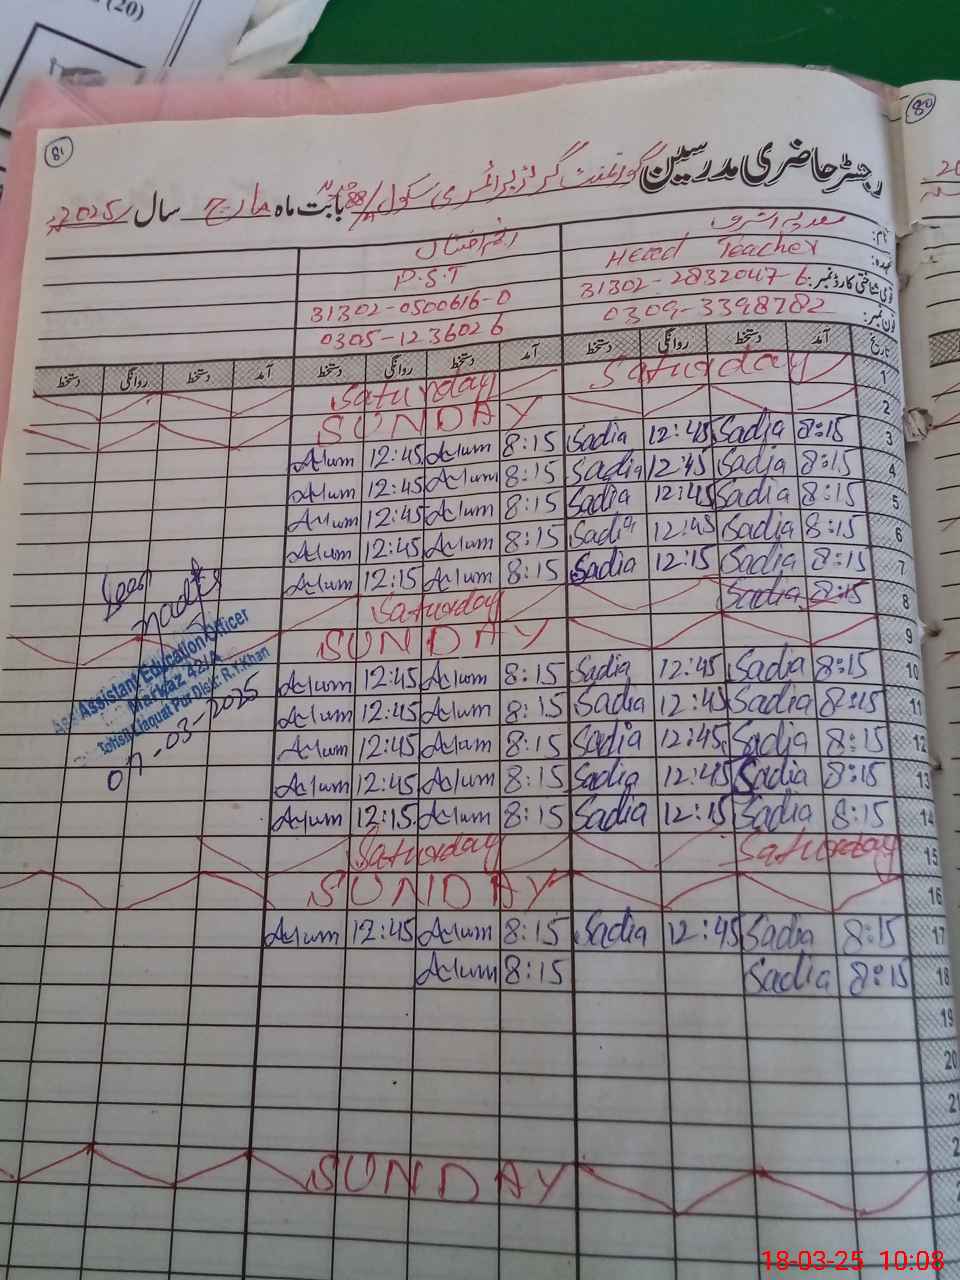 (20)
81
80
رجسٹر حاضری مدرسین گورنمنٹ گرلز پرائمری سکول 88/A بابت ماہ مارچ سال 2025
نام: سعدیہ اشرف
عہدہ: Head Teacher P.S.T
قومی شناختی کارڈ نمبر: 31302-2832047-6 31302-0500616-0
فون نمبر: 0309-3398782 0305-1236026
تاریخ آمد دستخط روانگی دستخط آمد دستخط روانگی دستخط آمد دستخط روانگی دستخط
1 Saturday Saturday
2 SUNDAY
3 8:15 Sadia 12:45 Sadia 8:15 Azlum 12:45 Azlum
4 8:15 Sadia 12:45 Sadia 8:15 Azlum 12:45 Azlum
5 8:15 Sadia 12:45 Sadia 8:15 Azlum 12:45 Azlum
6 8:15 Sadia 12:45 Sadia 8:15 Azlum 12:45 Azlum
7 8:15 Sadia 12:15 Sadia 8:15 Azlum 12:15 Azlum
8 8:15 Sadia Saturday
9 SUNDAY
10 8:15 Sadia 12:45 Sadia 8:15 Azlum 12:45 Azlum
11 8:15 Sadia 12:45 Sadia 8:15 Azlum 12:45 Azlum
12 8:15 Sadia 12:45 Sadia 8:15 Azlum 12:45 Azlum
13 8:15 Sadia 12:45 Sadia 8:15 Azlum 12:45 Azlum
14 8:15 Sadia 12:15 Sadia 8:15 Azlum 12:15 Azlum
15 Saturday Saturday
16 SUNDAY
17 8:15 Sadia 12:45 Sadia 8:15 Azlum 12:45 Azlum
18 8:15 Sadia 8:15 Azlum
19
20
21
SUNDAY
Seen
Assistant Education Officer
Markaz 42/A
Tehsil Liaquat Pur Distt: R.Y.Khan
07-03-2025
18-03-25 10:08